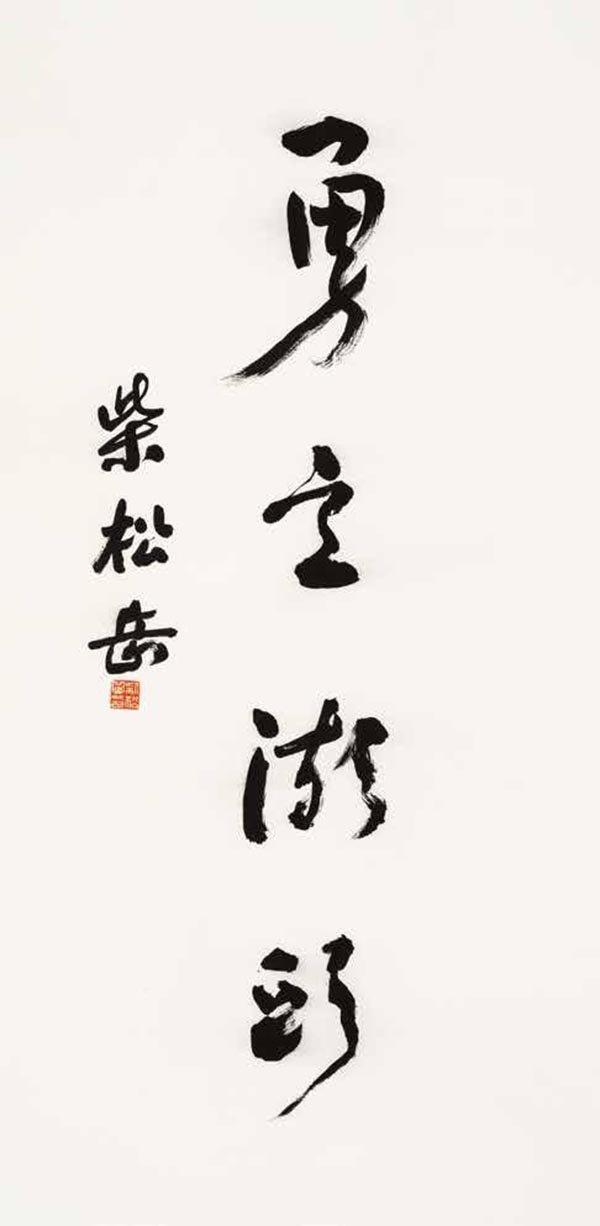 勇立潮頭
柴松岳